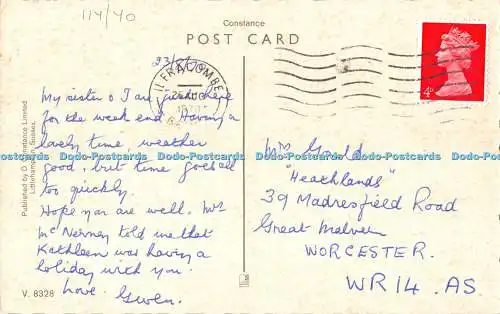 114/40
Constance
POST CARD
ILFRACOMBE
4D
My sister & I are just here
for the week end. Having a
lovely time, weather
good, but time goes all
too quickly.
Hope you are well. Mrs
McNerney told me that
Kathleen was having a
holiday with you.
Love. Gwen.
Mrs Gould
"Heathlands"
39 Madresfield Road
Great Malvern
WORCESTER.
WR14. AS
Published by D. Constance Limited
Littlehampton, Sussex.
V. 8328
Dodo-Postcards Dodo-Postcards Dodo-Postcards Dodo-Postcards Dodo-Postcards